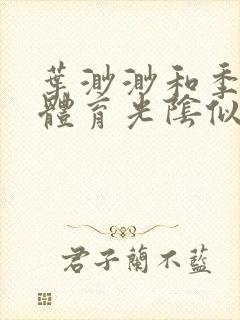 葉渺渺和季
體育光陰似
君子蘭不藍